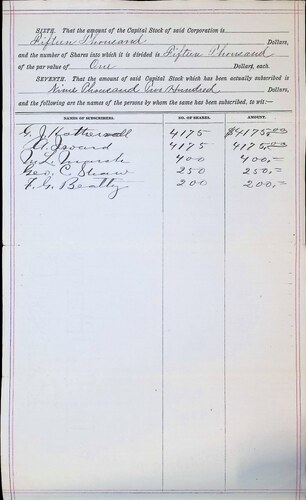 SIXTH. That the amount of the Capital Stock of said Corporation is
Fifteen Thousand Dollars,
and the number of Shares into which it is divided is Fifteen Thousand
of the par value of One Dollars, each.
SEVENTH. That the amount of said Capital Stock which has been actually subscribed is
Nine Thousand Two Hundred Dollars,
and the following are the names of the persons by whom the same has been subscribed, to wit:—
NAMES OF SUBSCRIBERS. NO. OF SHARES. AMOUNT.
G. J. 4175 $4175.00
4175 4175.00
400 400.—
Geo. C. Shaw 250 250.—
F. G. Beatty 200 200.—